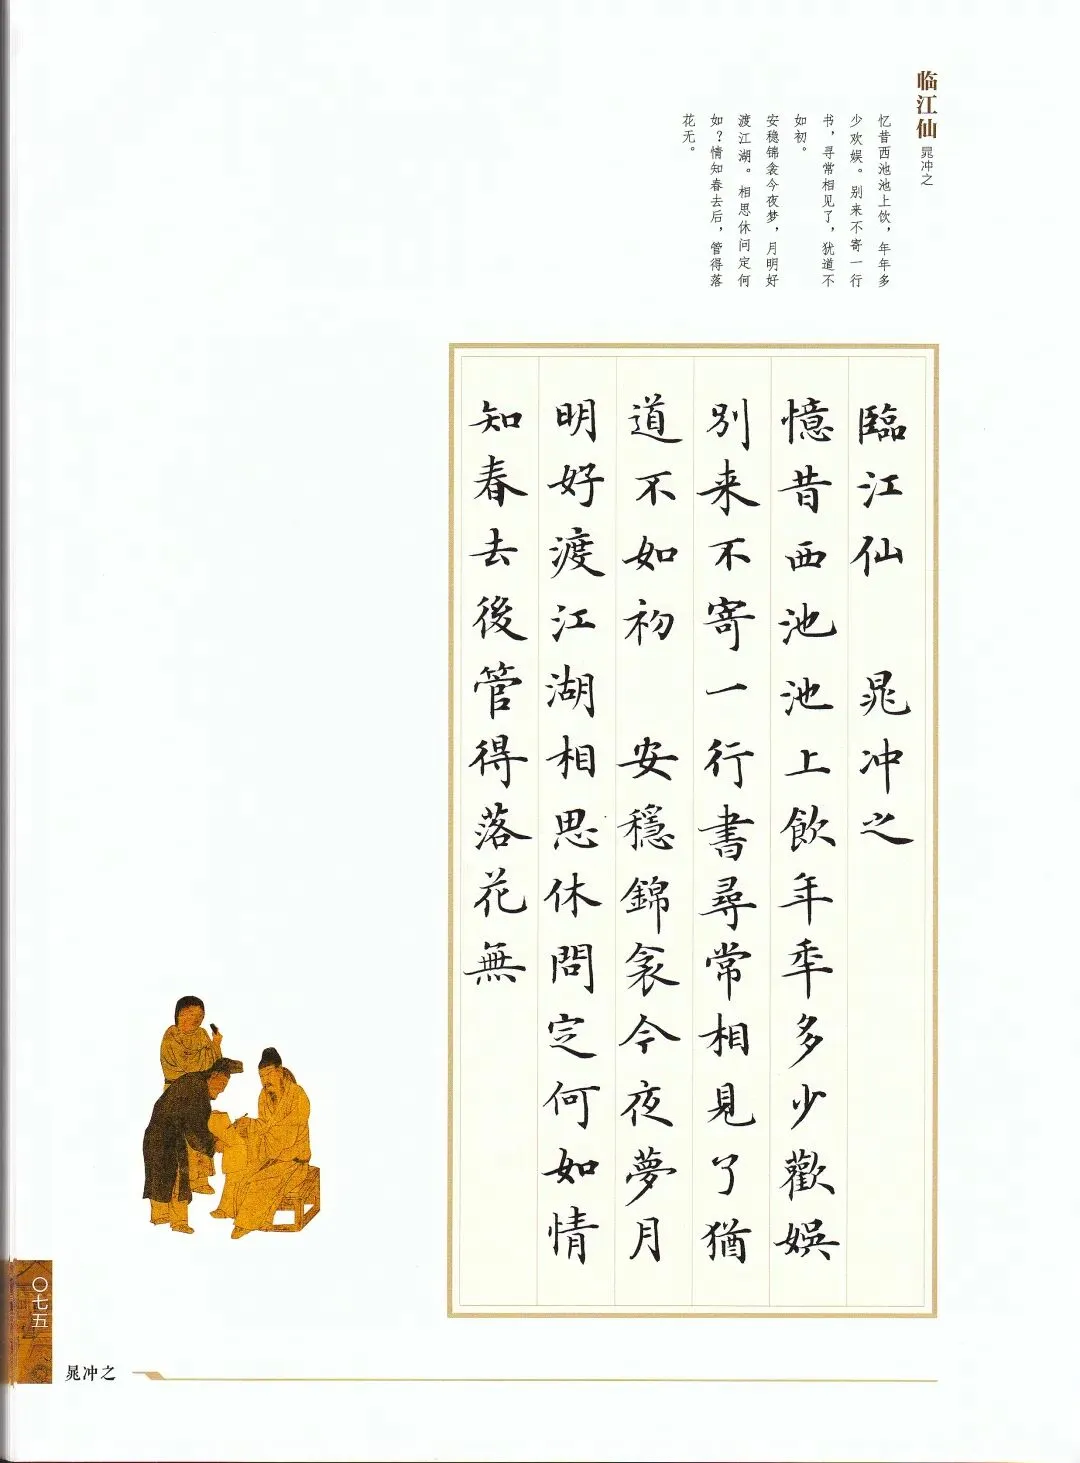 临江仙 晁冲之
忆昔西池池上饮，年年多
少欢娱。别来不寄一行
书，寻常相见了，犹道不
如初。
安稳锦衾今夜梦，月明好
渡江湖。相思休问定何
如？情知春去后，管得落
花无。
臨江仙 晁冲之
憶昔西池池上飲年年多少歡娛
別来不寄一行書尋常相見了猶
道不如初 安穩錦衾今夜夢月
明好渡江湖相思休問定何如情
知春去後管得落花無
〇七五
晁冲之